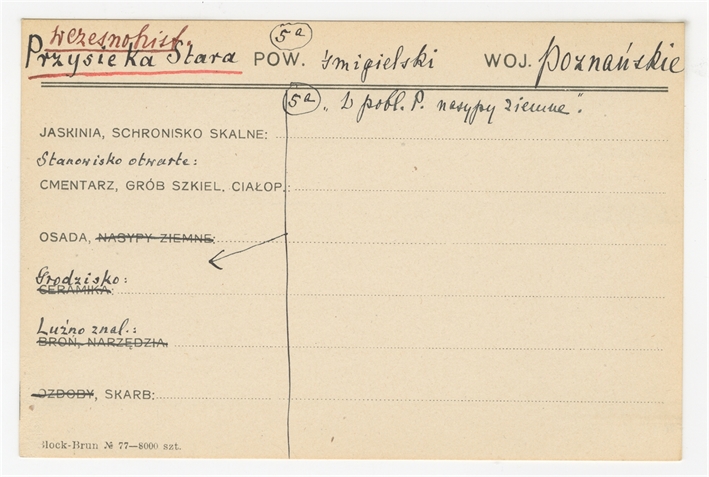 wczesnohist.
Przysieka Stara POW. śmigielski WOJ. poznańskie
5a
5a „W pobl. P. nasypy ziemne".
JASKINIA, SCHRONISKO SKALNE:
Stanowisko otwarte:
CMENTARZ, GRÓB SZKIEL. CIAŁOP.:
OSADA, NASYPY ZIEMNE:
Grodzisko:
CERAMIKA:
Luźno znal.:
BROŃ, NARZĘDZIA.
OZDOBY, SKARB:
Block-Brun № 77—8000 szt.